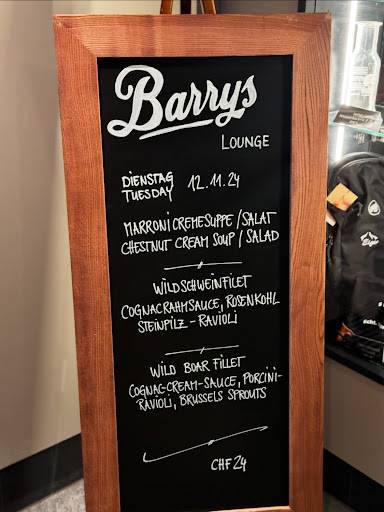 Barrys
LOUNGE
DIENSTAG
TUESDAY 12.11.24
MARRONICREMESUPPE / SALAT
CHESTNUT CREAM SOUP / SALAD
WILDSCHWEINFILET
COGNACRAHMSAUCE, ROSENKOHL
STEINPILZ - RAVIOLI
WILD BOAR FILLET
COGNAC-CREAM-SAUCE, PORCINI-
RAVIOLI, BRUSSELS SPROUTS
CHF 24